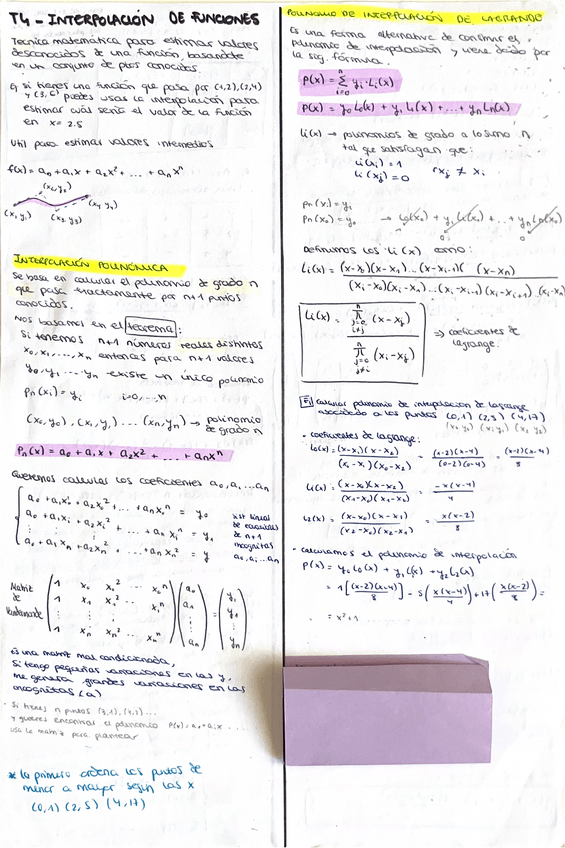 T4 - INTERPOLACIÓN DE FUNCIONES
Tecnica matematica para estimar valores
desconocidos de una función, basandote
en un conjunto de ptos conocidos.
Ej si tienes una función que pasa por (1,2),(2,4)
y (3,6) puedes usar la interpolación para
estimar cuál sería el valor de la función
en x = 2.5
Util para estimar valores intermedios
f(x) = a₀ + a₁x + a₂x² + ... + aₙxⁿ
INTERPOLACIÓN POLINÓMICA
Se basa en calcular el polinomio de grado n
que pasa exactamente por n+1 puntos
conocidos.
Nos basamos en el teorema:
Si tenemos n+1 números reales distintos
x₀, x₁, ..., xₙ entonces para n+1 valores
y₀, y₁, ... yₙ existe un único polinomio
pₙ(xᵢ) = yᵢ i=0, ... n
(x₀,y₀), (x₁,y₁) ... (xₙ,yₙ) → polinomio
de grado n
Pₙ(x) = a₀ + a₁x + a₂x² + ... + aₙxⁿ
Queremos calcular los coeficientes a₀, a₁, ... aₙ
a₀ + a₁x₀ + a₂x₀² + ... + aₙx₀ⁿ = y₀
de n+1
incognitas
a₀, a₁ ... aₙ
Matriz
de
Vandermonde
Es una matriz mal condicionada,
Si tengo pequeñas variaciones en las y,
me genera grandes variaciones en las
incognitas (a)
Si tienes n puntos
y quieres encontrar el polinomio P(x) = a₀ + a₁x
usa la matriz para plantear
* lo primero ordena los puntos de
menor a mayor segun las x
(0,1) (2,5) (4,17)
POLINOMIO DE INTERPOLACIÓN DE LAGRANGE
Es una forma alternativa de construir el
polinomio de interpolación y viene dado por
la sig. fórmula.
P(x) = Σ yᵢ · Lᵢ(x)
P(x) = y₀ L₀(x) + y₁ L₁(x) + ... + yₙ Lₙ(x)
Lᵢ(x) → polinomios de grado a lo sumo n
tal que satisfagan que:
Lᵢ(xᵢ) = 1
Lᵢ(xⱼ) = 0 ∀xⱼ ≠ xᵢ
pₙ(xᵢ) = yᵢ
pₙ(x₀) = y₀ → L₀(x₀) + y₁ L₁(x₀) + ... + yₙ Lₙ(x₀)
Definimos los Lᵢ(x) como:
Lᵢ(x) = (x-x₀)(x-x₁)...(x-xᵢ₋₁)( (x-xₙ)
(xᵢ-x₀)(xᵢ-x₁)...(xᵢ-xᵢ₋₁)(xᵢ-xᵢ₊₁)..(xᵢ-xₙ)
Lᵢ(x) = ∏ (x-xⱼ)
∏ (xᵢ-xⱼ)
⇒ coeficientes de
lagrange.
Ej calcular polinomio de interpolación de lagrange
asociado a los puntos (0,1) (2,5) (4,17)
(x₀ y₀) (x₁ y₁) (x₂ y₂)
• coeficientes de lagrange:
L₀(x) = (x-x₁)(x-x₂) = (x-2)(x-4) = (x-2)(x-4)
(0-2)(0-4) 8
L₁(x) = (x-x₀)(x-x₂) = -x(x-4)
(x₁-x₀)(x₁-x₂) 4
L₂(x) = (x-x₀)(x-x₁) = x(x-2)
(x₂-x₀)(x₂-x₁) 8
• calculamos el polinomio de interpolación
P(x) = y₀ L₀(x) + y₁ L₁(x) + y₂ L₂(x)
= 1[(x-2)(x-4)/8] - 5(x(x-4)/4) + 17(x(x-2)/8) =
= x² + 1